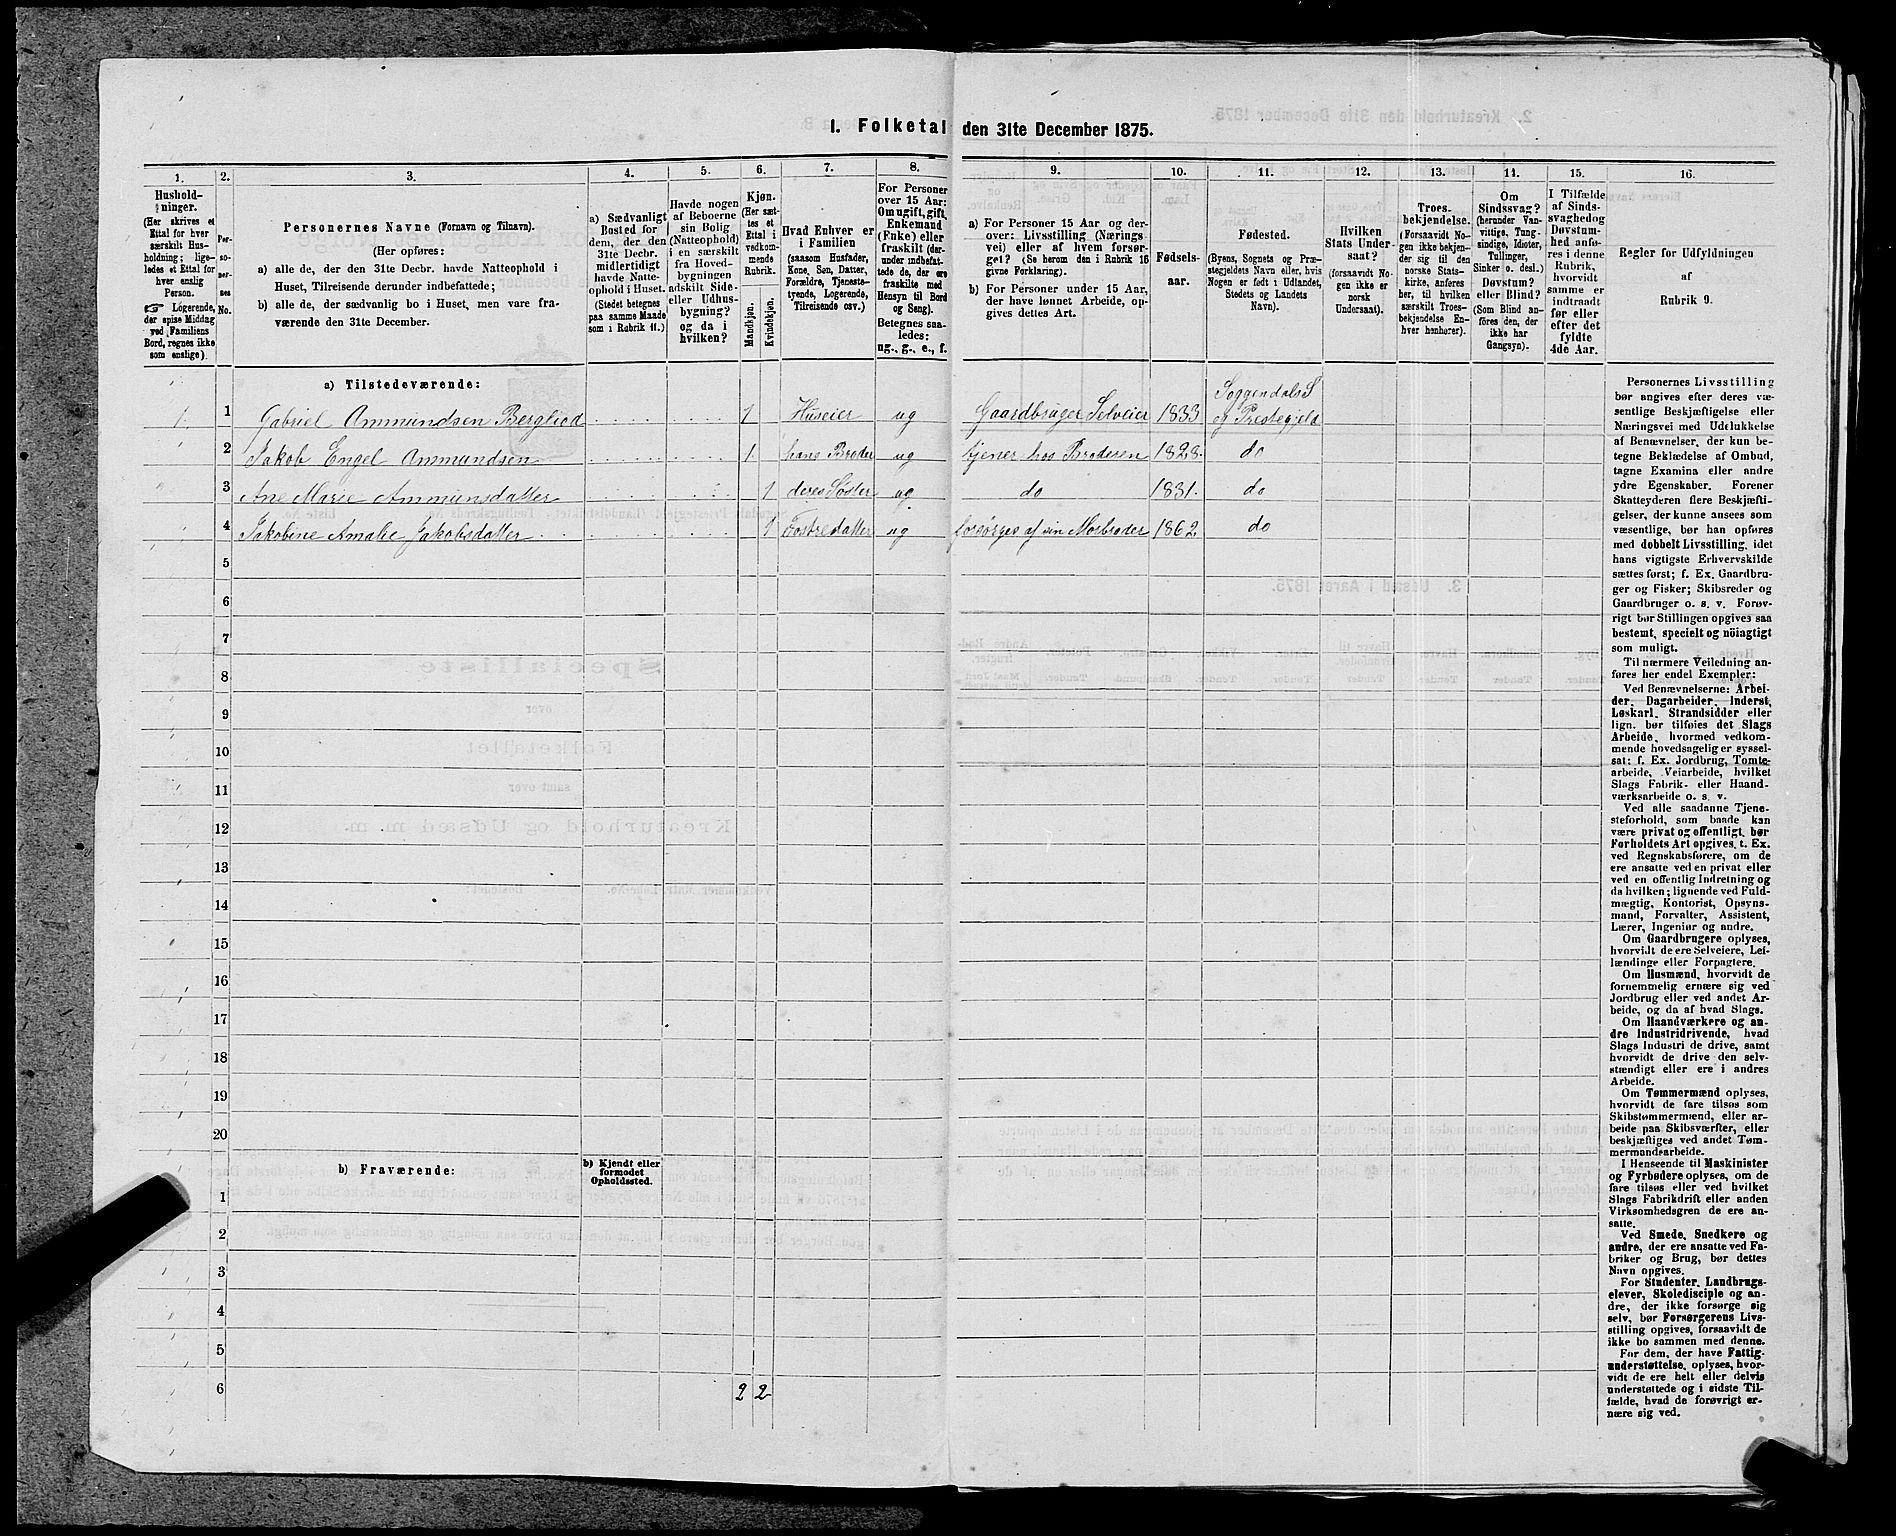 1. Folketal den 31te December 1875.
1.
Hushold-
ninger.
(Her skrives et
Ettal for hver
særskilt Hus-
holdning; lige-
ledes et Ettal for
hver enslig
Person.
☞ Logerende,
der spise Middag
ved Familiens
Bord, regnes ikke
som enslige).
2.
Per-
so-
ner-
nes
No.
3.
Personernes Navne (Fornavn og Tilnavn).
(Her opføres:
a) alle de, der den 31te Decbr. havde Natteophold i
Huset, Tilreisende derunder indbefattede;
b) alle de, der sædvanlig bo i Huset, men vare fra-
værende den 31te December.
4.
a) Sædvanligt
Bosted for
dem, der den
31te Decbr.
midlertidigt
havde Natte-
ophold i Huset.
(Stedet betegnes
paa samme Maade
som i Rubrik 11.)
5.
Havde nogen
af Beboerne
sin Bolig
(Natteophold)
i en særskilt
fra Hoved-
bygningen
adskilt Side-
eller Udhus-
bygning?
og da i
hvilken?
6.
Kjøn.
(Her sæt-
tes et
Ettal i
vedkom-
mende
Rubrik.
Mandkjøn.
Kvindekjøn.
7.
Hvad Enhver er
i Familien
(saasom Husfader,
Kone, Søn, Datter,
Forældre, Tjeneste-
tyende, Logerende,
Tilreisende osv.)
8.
For Personer
over 15 Aar:
Om ugift, gift,
Enkemand
(Enke) eller
fraskilt (der-
under indbefat-
tede de, der ere
fraskilte med
Hensyn til Bord
og Seng).
Betegnes saa-
ledes:
ug., g., e., f.
9.
a) For Personer 15 Aar og der-
over: Livsstilling (Nærings-
vei) eller af hvem forsør-
get? (Se herom den i Rubrik 16
givne Forklaring).
b) For Personer under 15 Aar,
der have lønnet Arbeide, op-
gives dettes Art.
10.
Fødsels-
aar.
11.
Fødested.
(Byens, Sognets og Præ-
stegjeldets Navn eller, hvis
Nogen er født i Udlandet,
Stedets og Landets
Navn).
12.
Hvilken
Stats Under-
saat?
(forsaavidt No-
gen ikke er
norsk
Undersaat).
13.
Troes-
bekjendelse.
(Forsaavidt No-
gen ikke bekjen-
der sig til den
norske Stats-
kirke, anføres
her, til hvilken
særskilt Troes-
bekjendelse En-
hver henhører).
14.
Om
Sindssvag?
(herunder Van-
vittige, Tung-
sindige, Idioter,
Tullinger,
Sinker o. desl.)
Døvstum?
eller Blind?
(Som Blind an-
føres den, der
ikke har
Gangsyn).
15.
I Tilfælde
af Sinds-
svaghed og
Døvstum-
hed anfø-
res i denne
Rubrik,
hvorvidt
samme er
indtraadt
før eller
efter det
fyldte
4de Aar.
16.
Regler for Udfyldningen
af
Rubrik 9.
a) Tilstedeværende:
1 1 Gabriel Ammundsen Bergliod 1 Huseier ug Gaardbruger Selveier 1833 Soggendals S og Prestegjeld
2 Jakob Engel Ammundsen 1 hans Broder ug tjener hos Broderen 1828 do
3 Ane Marie Ammunsdatter 1 deres Søster ug do 1831 do
4 Jakobine Amalie Jakobsdatter 1 Fostredatter ug forsørges af sin Morbroder 1862 do
5
6
7
8
9
10
11
12
13
14
15
16
17
18
19
20
b) Fraværende:
b) Kjendt eller
formodet
Opholdssted.
1
2
3
4
5
6 2 2
Personernes Livsstilling
bør angives efter deres væ-
sentlige Beskjæftigelse eller
Næringsvei med Udelukkelse
af Benævnelser, der kun be-
tegne Beklædelse af Ombud,
tagne Examina eller andre
ydre Egenskaber. Forener
Skatteyderen flere Beskjæfti-
gelser, der kunne ansees som
væsentlige, bør han opføres
med dobbelt Livsstilling, idet
hans vigtigste Erhvervskilde
sættes først; f. Ex. Gaardbru-
ger og Fisker; Skibsreder og
Gaardbruger o. s. v. Forøv-
rigt bør Stillingen opgives saa
bestemt, specielt og nøiagtigt
som muligt.
Til nærmere Veiledning an-
føres her endel Exempler:
Ved Benævnelserne: Arbei-
der, Dagarbeider, Inderst,
Løskarl, Strandsidder eller
lign. bør tilføies det Slags
Arbeide, hvormed vedkom-
mende hovedsagelig er syssel-
sat: f. Ex. Jordbrug, Tomte-
arbeide, Veiarbeide, hvilket
Slags Fabrik- eller Haand-
værksarbeide o. s. v.
Ved alle saadanne Tjene-
steforhold, som baade kan
være privat og offentligt, bør
Forholdets Art opgives, t. Ex.
ved Regnskabsførere, om de
ere ansatte ved en privat eller
ved en offentlig Indretning og
da hvilken; lignende ved Fuld-
mægtig, Kontorist, Opsyns-
mand, Forvalter, Assistent,
Lærer, Ingeniør og andre.
Om Gaardbrugere oplyses,
hvorvidt de ere Selveiere, Lei-
lændinge eller Forpagtere.
Om Husmænd, hvorvidt de
fornemmelig ernære sig ved
Jordbrug eller ved andet Ar-
beide, og da af hvad Slags.
Om Haandværkere og an-
dre Industridrivende, hvad
Slags Industri de drive, samt
hvorvidt de drive den selv-
stændigt eller ere i andres
Arbeide.
Om Tømmermænd oplyses,
hvorvidt de fare tilsøs som
Skibstømmermænd, eller ar-
beide paa Skibsværfter, eller
beskjæftiges ved andet Tøm-
mermandsarbeide.
I Henseende til Maskinister
og Fyrbødere oplyses, om de
fare tilsøs eller ved hvilket
Slags Fabrikdrift eller anden
Virksomhedsgren de ere an-
satte.
Ved Smede, Snedkere og
andre, der ere ansatte ved Fa-
briker og Brug, bør dettes
Navn opgives.
For Studenter, Landbrugs-
elever, Skoledisciple og an-
dre, der ikke forsørge sig
selv, bør Forsørgerens Livs-
stilling opgives, forsaavidt de
ikke bo sammen med denne.
For dem, der have Fattig-
understøttelse, oplyses, hvor-
vidt de ere helt eller delvis
understøttede og i sidste Til-
fælde, hvad de forøvrigt er-
nære sig ved.